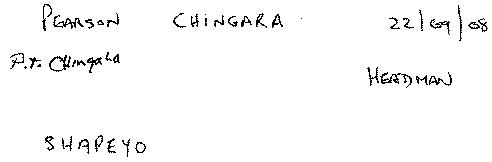 PEARSON CHINGARA 22/09/08
P.T. Chingara
HEADMAN
SHAPEYO